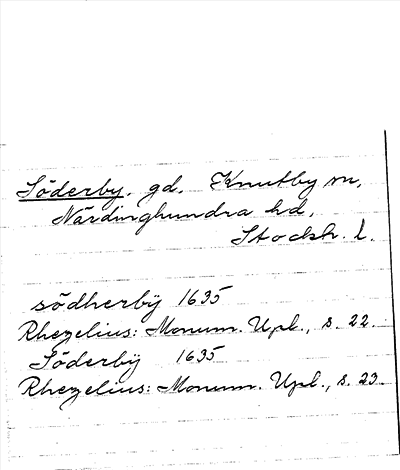 Söderby. gd. Knutby sn,
Närdinghundra hd,
Stockh. l.
södherbÿ 1635
Rhezelius: Monum. Upl., s. 22.
Söderbÿ 1635
Rhezelius: Monum. Upl., s. 23.